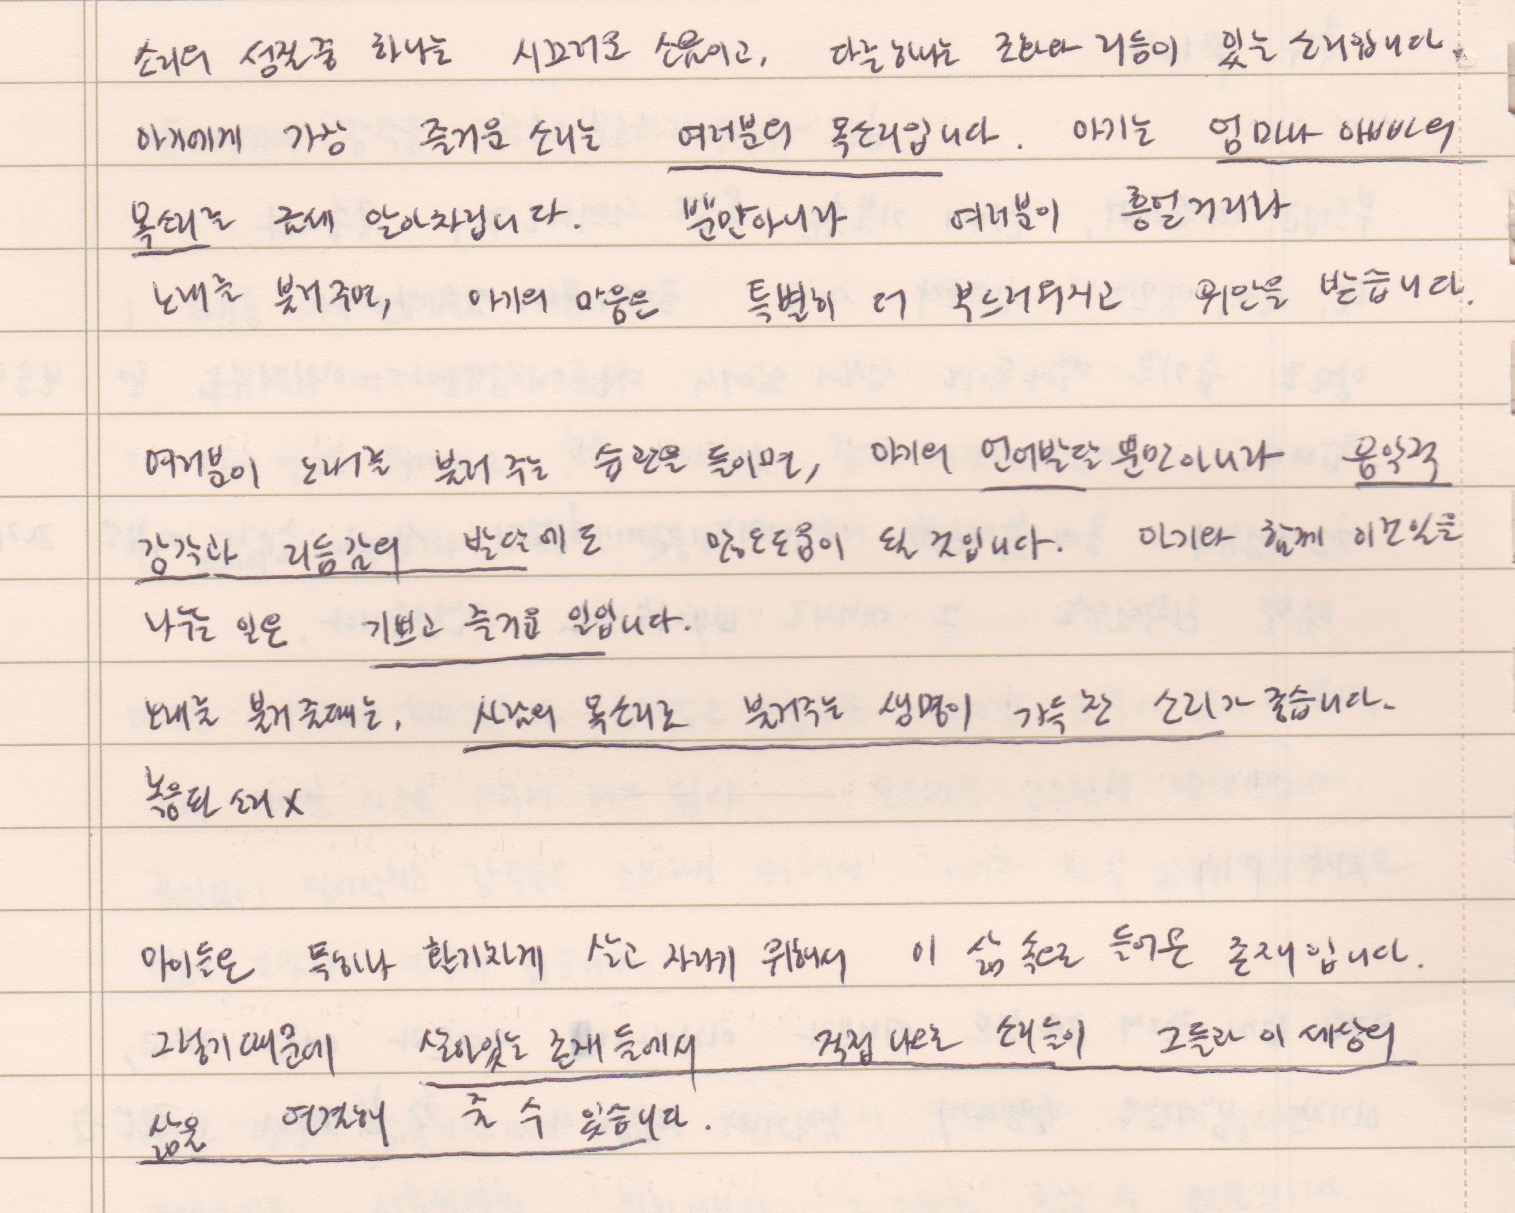 소리의 성질중 하나는 시끄러운 소음이고, 다른하나는 조화와 리듬이 있는 소리입니다.
아기에게 가장 즐거운 소리는 여러분의 목소리입니다. 아기는 엄마나 아빠의
목소리를 금세 알아차립니다. 뿐만아니라 여러분이 흥얼거리나
노래를 불러주면, 아기의 마음은 특별히 더 부드러워지고 위안을 받습니다.
여러분이 노래를 불러 주는 습관을 들이면, 아기의 언어발달 뿐만아니라 음악적
감각과 리듬감의 발달에도 많은도움이 될 것입니다. 아기와 함께 이모든일을
나누는 일은 기쁘고 즐거운 일입니다.
노래를 불러 줄때는, 사람의 목소리로 불러주는 생명이 가득 찬 소리가 좋습니다.
녹음된 소리 X
아이들은 특히나 활기차게 살고 자라기 위해서 이 삶 속으로 들어온 존재입니다.
그렇기 때문에 살아있는 존재 들에서 직접 나온 소리들이 그들과 이 세상의
삶을 연결해 줄 수 있습니다.